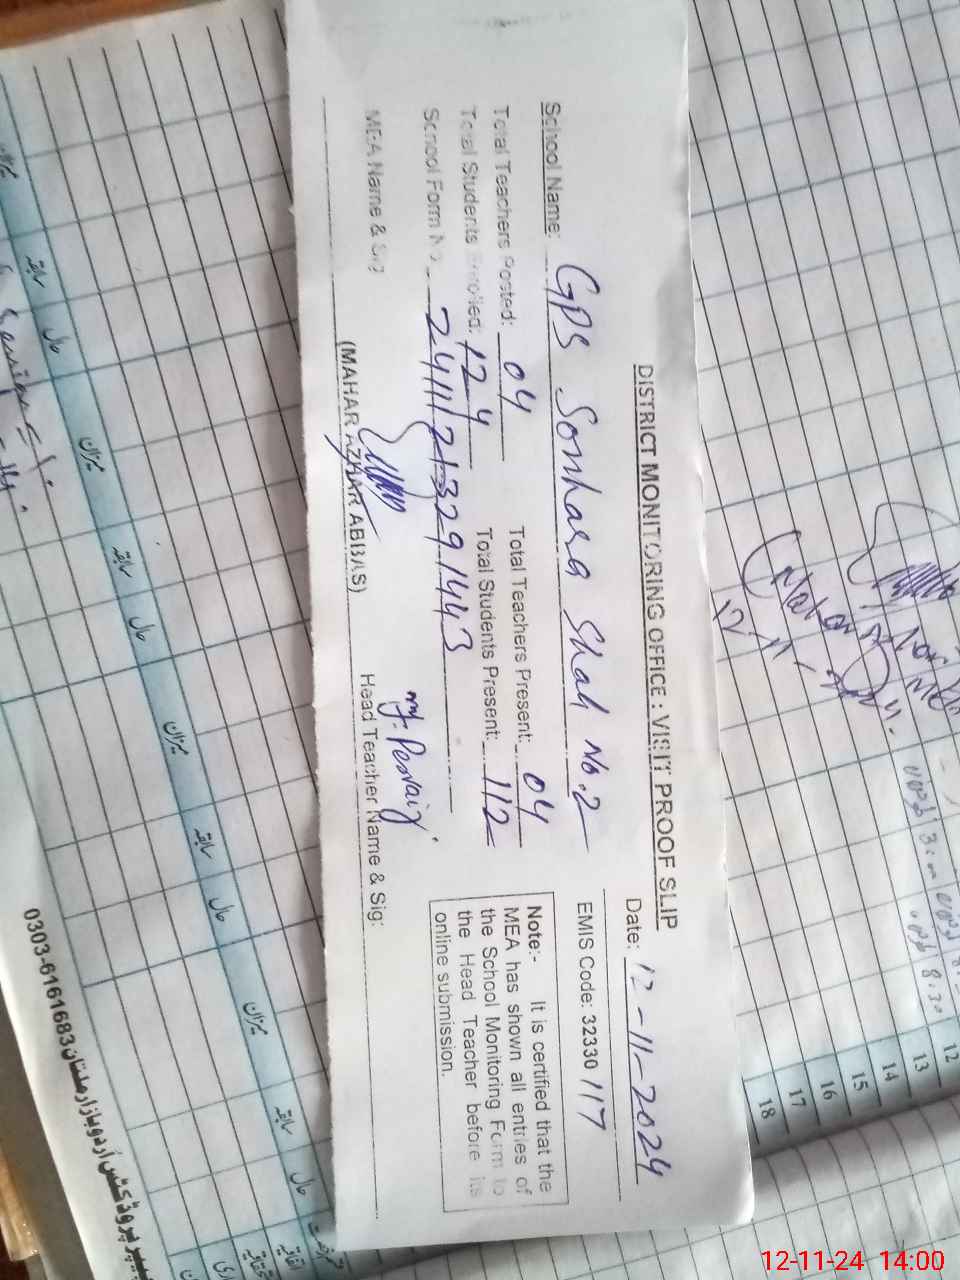 DISTRICT MONITORING OFFICE : VISIT PROOF SLIP
Date: 12-11-2024
School Name: GPS Sonhara Shah No.2
EMIS Code: 32330117
Total Teachers Posted: 04
Total Teachers Present: 04
Total Students Enrolled: 124
Total Students Present: 112
School Form No. 24111213291443
MEA Name & Sig
(MAHAR AZHAR ABBAS)
Head Teacher Name & Sig:
Note:- It is certified that the
MEA has shown all entries of
the School Monitoring Form to
the Head Teacher before its
online submission.
12-11-
12
13
14
15
16
17
18
میزان
سابقہ
حال
میزان
سابقہ
حال
میزان
سابقہ
حال
میزان
سابقہ
حال
0303-6161683
اردو بازار ملتان
12-11-24 14:00